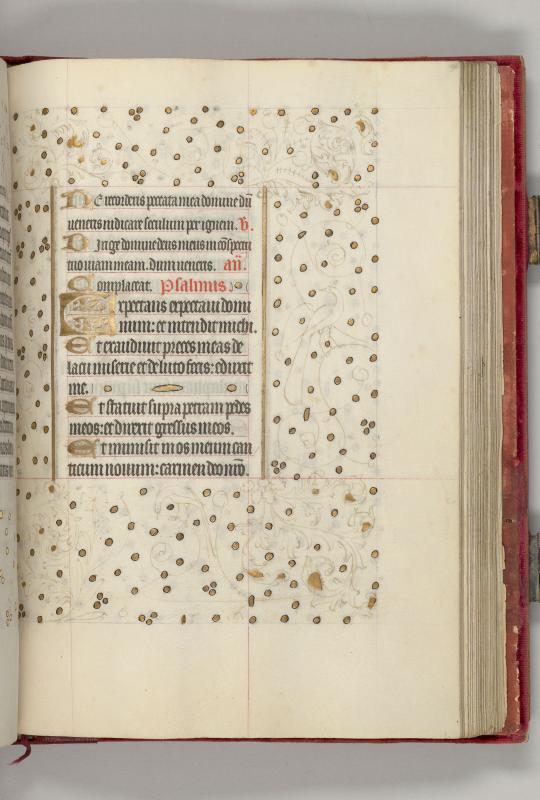 Ne recorderis peccata mea domine dū
veneris iudicare seculum per ignem. v̄.
Dirige domine deus meus in cōspectu
tuo viam meam. dum veneris. añ.
Complaceat. Psalmus.
Expectans expectaui domi
num: et intendit michi.
Et exaudiuit preces meas de
lacu miserie et de luto fecis: eduxit
me.
Et statuit supra petram pedes
meos: et direxit gressus meos.
Et inmisit in os meum can
ticum nouum: carmen deo nr̄o.